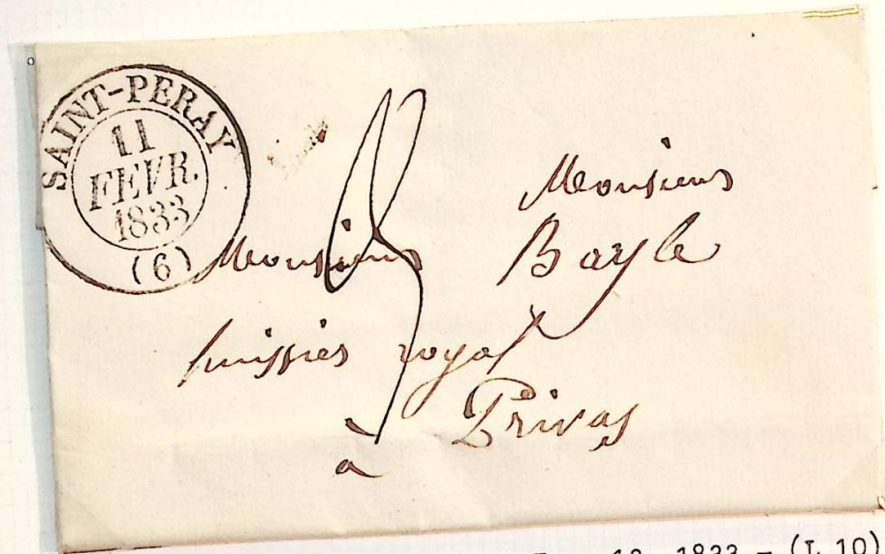 SAINT-PERAY
11
FEVR.
1833
(6)
Monsieur
Monsieur Bayle
huissier royal
à Privas
1833 - (L 10)